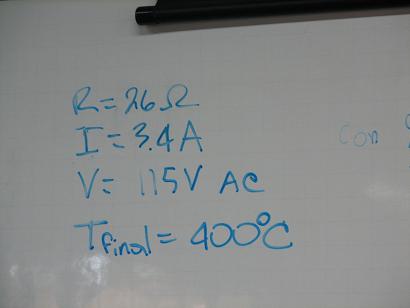 R=26Ω
I=3.4A
V= 115V AC
Tfinal= 400°C
con